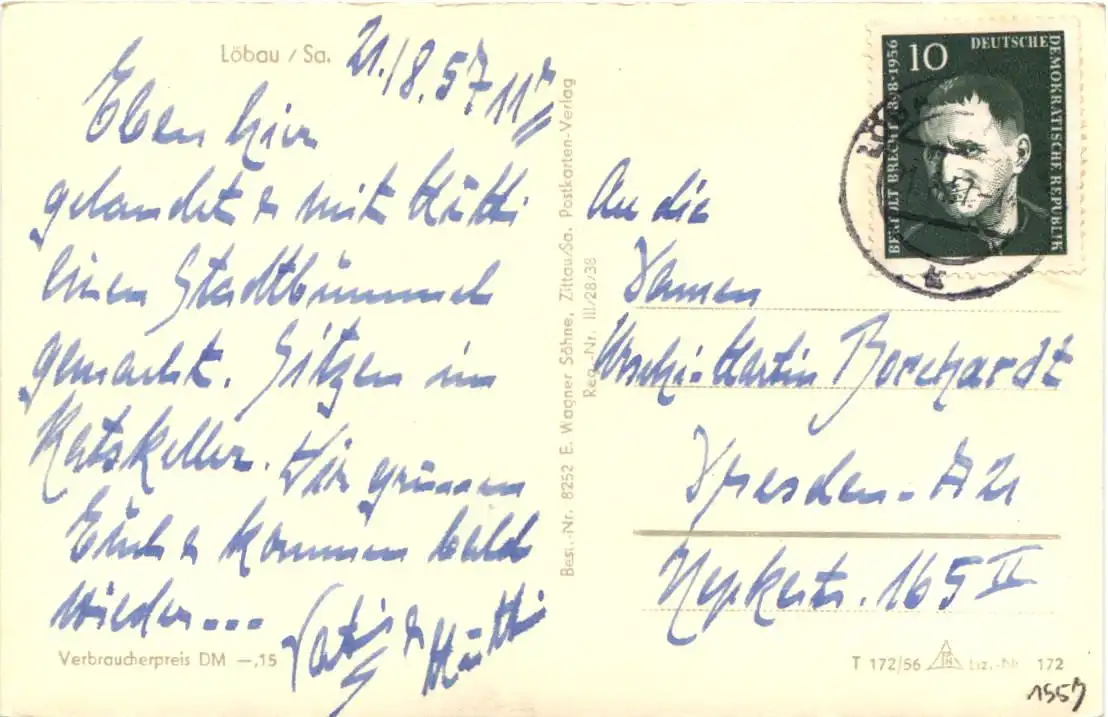 Löbau / Sa.
21./8.57 11
Eben hier
gelandet & mit Mutti
einen Stadtbummel
gemacht. Sitzen im
Ratskeller. Wir grüssen
Euch & kommen bald
wieder...
Vati & Mutti
Verbraucherpreis DM –,15
Best.-Nr. 8252 E. Wagner Söhne, Zittau/Sa. Postkarten-Verlag
Reg.-Nr. III/28/38
10
DEUTSCHE
DEMOKRATISCHE REPUBLIK
BERTOLT BRECHT
1956
An die
Damen
Borchardt
Dresden - A 21
165 II
T 172/56
Liz.-Nr. 172
1957